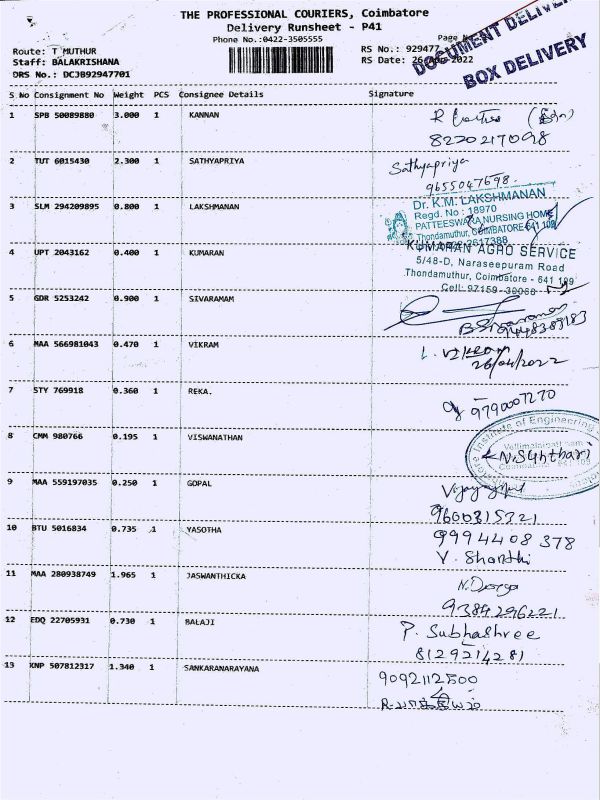 THE PROFESSIONAL COURIERS, Coimbatore
Delivery Runsheet - P41
Phone No.:0422-3505555
Page
DOCUMENT DELIVERY
BOX DELIVERY
Route: T MUTHUR
Staff: BALAKRISHANA
DRS No.: DCJB92947701
RS No.: 929477
RS Date: 26 Apr 2022
S No Consignment No Weight PCS Consignee Details Signature
1 SPB 50089880 3.000 1 KANNAN
8220217098
2 TUT 6015430 2.300 1 SATHYAPRIYA
Sathyapriya
9655047698.
3 SLM 294209895 0.800 1 LAKSHMANAN
Dr. K.M. LAKSHMANAN
Regd. No : 18970
PATTEESWARA NURSING HOME
Thondamuthur, COIMBATORE-641 109
2617388
4 UPT 2043162 0.400 1 KUMARAN
KUMARAN AGRO SERVICE
5/48-D, Naraseepuram Road
Thondamuthur, Coimbatore - 641 109
Cell: 97159-30088
5 GDR 5253242 0.900 1 SIVARAMAM
9448383183
6 MAA 566981043 0.470 1 VIKRAM
L. VIKRAM
26/04/2022
7 STY 769918 0.360 1 REKA.
9790007270
8 CMM 980766 0.195 1 VISWANATHAN
Institute of Engineering
N.Suhthari
9 MAA 559197035 0.250 1 GOPAL
9600315321
10 BTU 5016834 0.735 1 YASOTHA
9994408378
V. Shanthi
11 MAA 280938749 1.965 1 JASWANTHICKA
9384296221
12 EDQ 22705931 0.730 1 BALAJI
P. Subhashree
8129214281
13 KNP 507812317 1.340 1 SANKARANARAYANA
9092112500